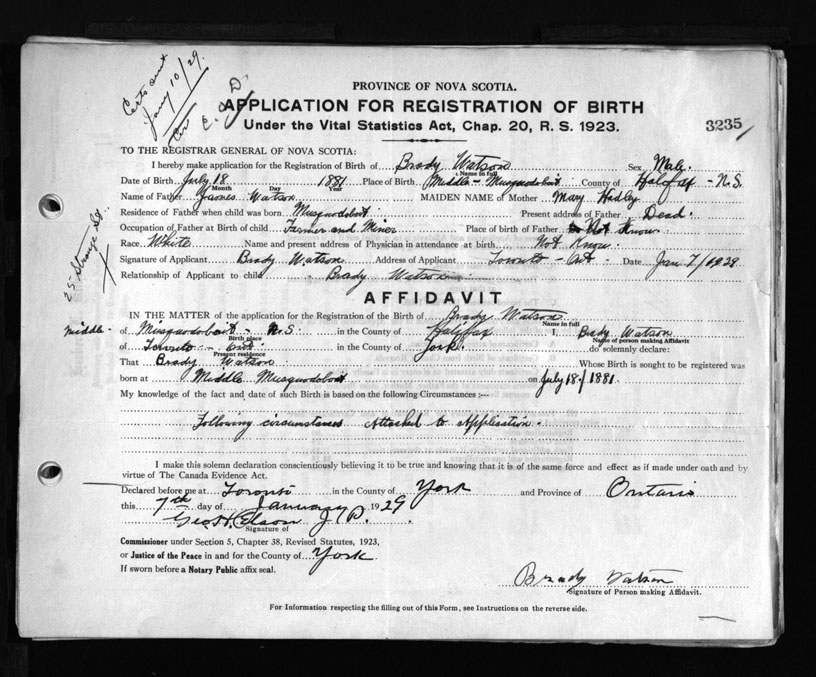 Certs sent
Jany 10/29.
C. D.
PROVINCE OF NOVA SCOTIA.
APPLICATION FOR REGISTRATION OF BIRTH
Under the Vital Statistics Act, Chap. 20, R. S. 1923.
3235
TO THE REGISTRAR GENERAL OF NOVA SCOTIA:
I hereby make application for the Registration of Birth of Brady Watson Sex Male.
Name in full
Date of Birth July 18 1881 Place of Birth Middle - Musquodoboit County of Halifax - N.S.
Month Day Year
Name of Father James Watson MAIDEN NAME of Mother Mary
Residence of Father when child was born Musquodoboit Present address of Father Dead.
Occupation of Father at Birth of child Farmer and Miner Place of birth of Father Not Know
Race White Name and present address of Physician in attendance at birth Not Know
Signature of Applicant Brady Watson Address of Applicant Toronto - Ont - Date Jan 7/1929
Relationship of Applicant to child Brady Watson
25 St.
AFFIDAVIT
IN THE MATTER of the application for the Registration of the Birth of Brady Watson
Name in full
Middle - of Musquodoboit - N.S. in the County of Halifax I, Brady Watson
Birth place Name of person making Affidavit
of Toronto - Ont in the County of York do solemnly declare:
Present residence
That Brady Watson Whose Birth is sought to be registered was
born at Middle Musquodoboit on July 18/1881.
My knowledge of the fact and date of such Birth is based on the following Circumstances :—
Following circumstances Attached to Application.
I make this solemn declaration conscientiously believing it to be true and knowing that it is of the same force and effect as if made under oath and by
virtue of The Canada Evidence Act.
Declared before me at Toronto in the County of York and Province of Ontario
this 7th day of January 1929
Geo. H. J.P.
Signature of
Commissioner under Section 5, Chapter 38, Revised Statutes, 1923,
or Justice of the Peace in and for the County of York
If sworn before a Notary Public affix seal.
Brady Watson
Signature of Person making Affidavit.
For Information respecting the filling out of this Form, see Instructions on the reverse side.